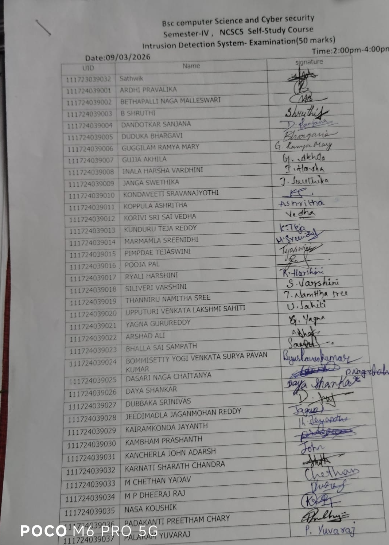 Bsc computer Science and Cyber security
Semester-IV, NCSCS Self-Study Course
Intrusion Detection System- Examination(50 marks)
Date:09/03/2026 Time:2:00pm-4:00pm
UID Name signature
Sathwik
111724039001 ARDHI PRAVALIKA
111724039002 BETHAPALLI NAGA MALLESWARI
111724039003 B SHRUTHI Shruthi
111724039004 DANDOTKAR SANJANA
111724039005 DUDUKA BHARGAVI Bhargavi
111724039006 GUGGILAM RAMYA MARY G Ramya Mary
111724039007 GUDA AKHILA G. Akhila
111724039008 INALA HARSHA VARDHINI I. Harsha
111724039009 JANGA SWETHIKA J. Swethika
111724039010 KONDAVEETI SRAVANAJYOTHI
111724039011 KOPPULA ASHRITHA Ashritha
111724039012 KORIVI SRI SAI VEDHA Vedha
111724039013 KUNDURU TEJA REDDY K.Teja
111724039014 MARMAMLA SREENIDHI
111724039015 PIMPDAE TEJASWINI
111724039016 POOJA PAL
111724039017 RYALI HARSHINI R. Harshini
111724039018 SILIVERI VARSHINI S. Varshini
111724039019 THANNIRU NAMITHA SREE T. Namitha Sree
111724039020 UPPUTURI VENKATA LAKSHMI SAHITI U. Sahiti
111724039021 YAGNA GURUREDDY G. Yagna
111724039022 ARSHAD ALI
111724039023 BHALLA SAI SAMPATH
111724039024 BOMMISETTY YOGI VENKATA SURYA PAVAN KUMAR
111724039025 DASARI NAGA CHAITANYA
111724039026 DAYA SHANKAR Daya Shankar
111724039027 DUBBAKA SRINIVAS
111724039028 JEEDIMADLA JAGANMOHAN REDDY
111724039029 KAIRAMKONDA JAYANTH
111724039030 KAMBHAM PRASHANTH
111724039031 KANCHERLA JOHN ADARSH John
111724039032 KARNATI SHARATH CHANDRA
111724039033 M CHETHAN YADAV Chethan
111724039034 M P DHEERAJ RAJ
111724039035 NASA KOUSHIK
111724039036 PADAKANTI PREETHAM CHARY
111724039037 PALAMARI YUVARAJ P. Yuvaraj
POCO M6 PRO 5G